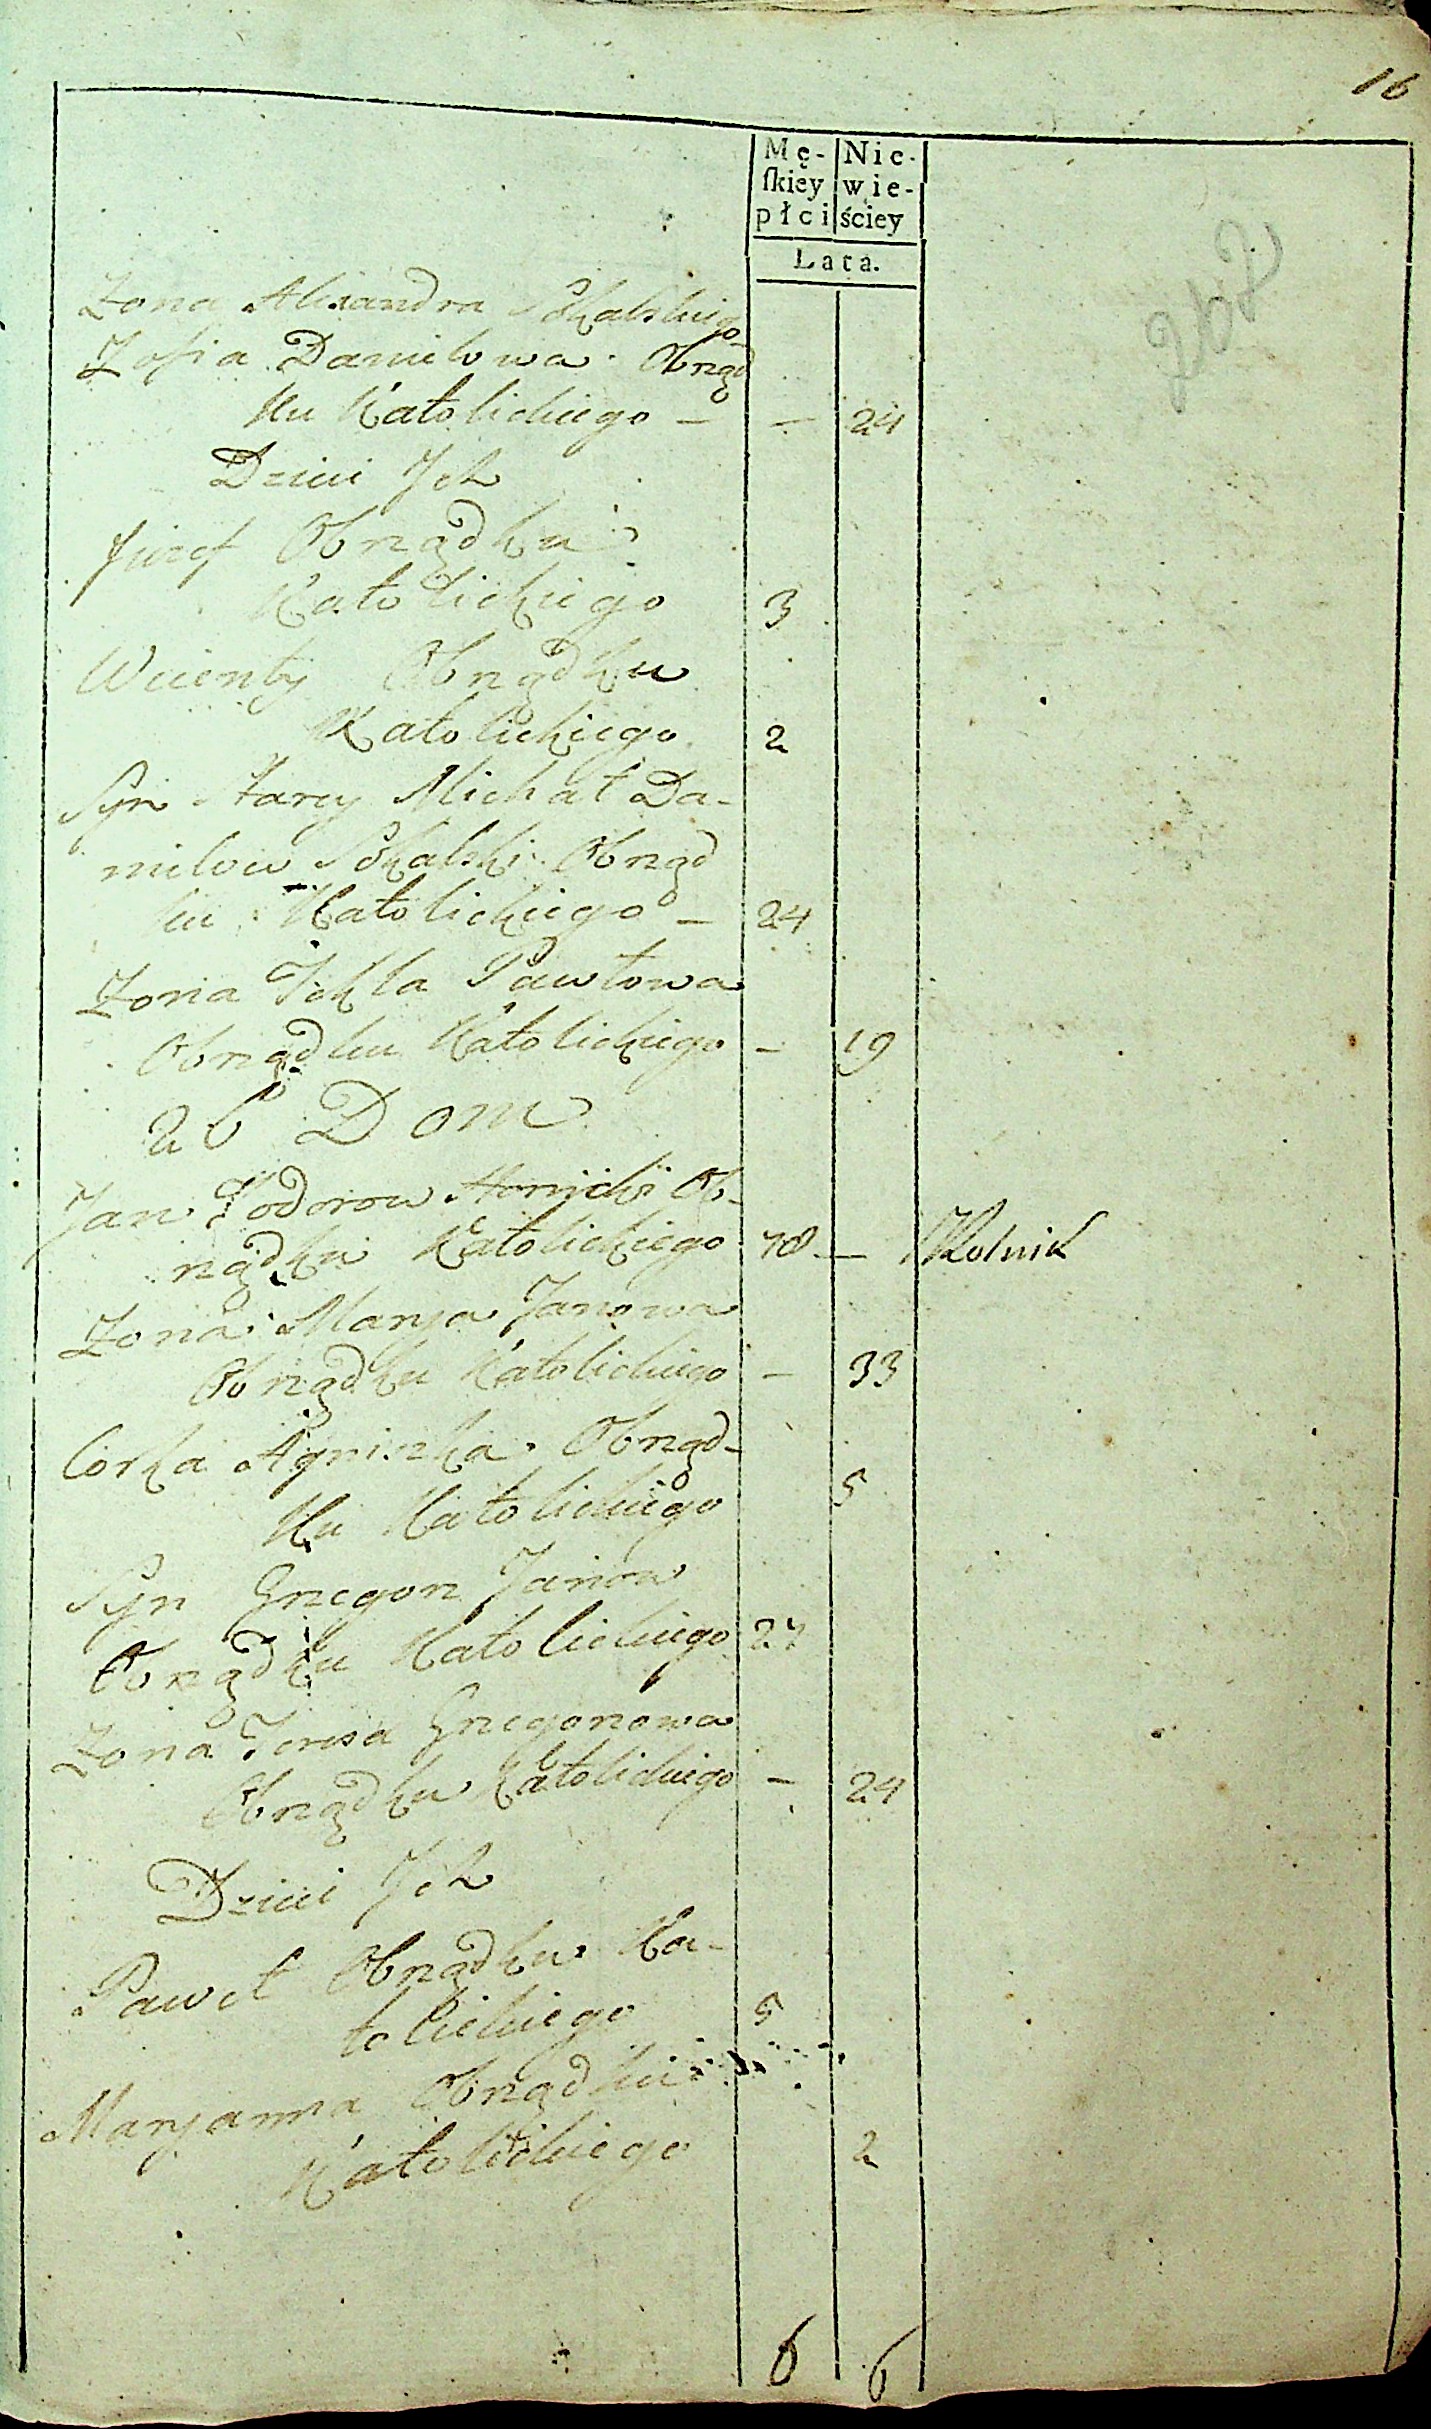 16
Mę- Nie-
ſkiey wie-
płci ściey
Lata.
Zona Alixandra Skalskiego
Zofia Daniłowa Obrząd
ku Katolickiego — — 24
Dzieci Jch
Juzef Obrządku
Katolickiego 3
Wicenty Obrządku
Katolickiego 2
Syn Starey Michał Da-
niłow Skalski Obrząd
ku Katolickiego — 24
Zona Tekla Pawłowa
Obrządku Katolickiego — 19
26 Dom
Jan Fodorow Ob-
rządku Katolickiego 78 — Rolnik
Zona Marya Janowa
Obrządku Katolickiego — 33
Corka Agniszka Obrząd-
ku Katolickiego 5
Syn Gregor Janow
Obrządku Katolickiego 27
Zona Teresa Gregorowa
Obrządku Katolickiego — 24
Dzieci Jch
Paweł Obrządku Ka-
tolickiego 5
Maryanna Obrządku
Katolickiego 2
6 6